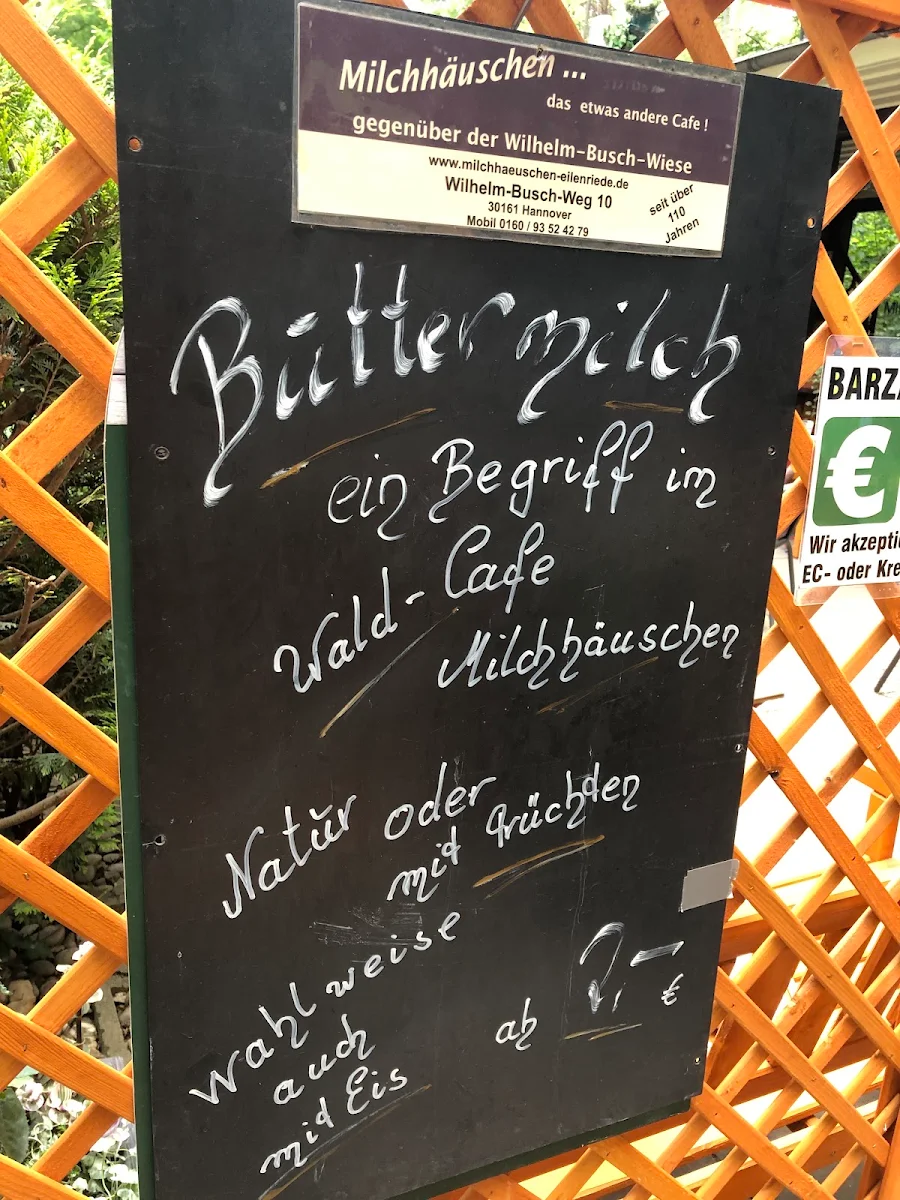 Milchhäuschen ...
das etwas andere Cafe !
gegenüber der Wilhelm-Busch-Wiese
www.milchhaeuschen-eilenriede.de
Wilhelm-Busch-Weg 10
30161 Hannover
Mobil 0160 / 93 52 42 79
seit über
110
Jahren
Büttermilch
ein Begriff im
Wald-Cafe
Milchhäuschen
Natŭr oder
mit Früchten
Wahlweise
auch
mit Eis
ab 2,- €
BARZA
€
Wir akzepti
EC- oder Kre